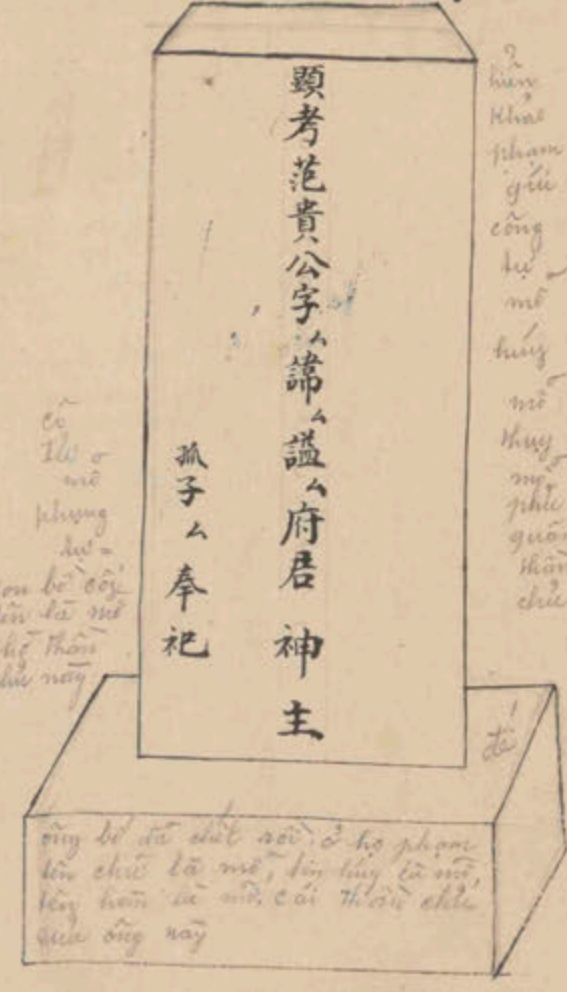 顯考范貴公字厶諱厶謚厶府君神主
孤子厶奉祀
hiển
khảo
phạm
quí
công
tự
mỗ
húy
mỗ
thụy
mỗ
phủ
quân
thần
chủ
cô
tử
mỗ
phụng
tự
con bố côi
tên là mỗ
thờ thần
chủ này
đế
ông bố đã chết rồi, ở họ phạm
tên chữ là mỗ, tên húy là mỗ,
tên hèm là mỗ, cái thần chủ
của ông này